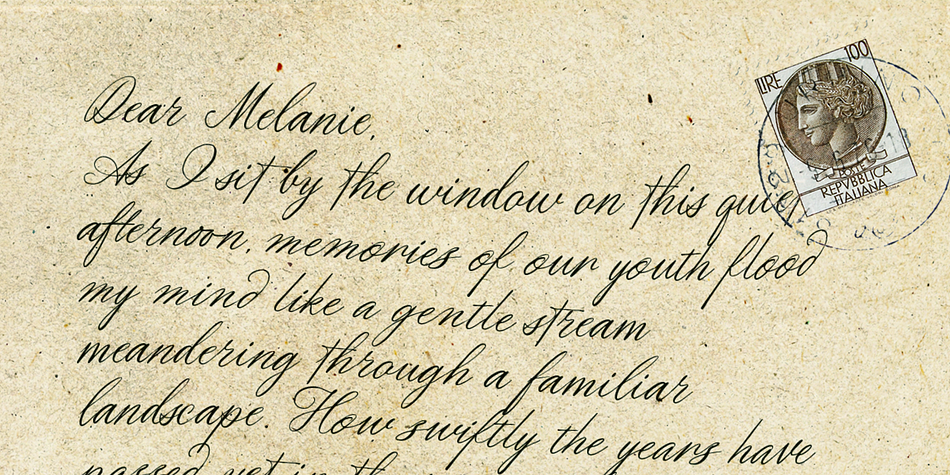 Dear Melanie,
As I sit by the window on this quiet
afternoon, memories of our youth flood
my mind like a gentle stream
meandering through a familiar
landscape. How swiftly the years have
passed, yet in
LIRE 100
POSTE
REPVBBLICA
ITALIANA